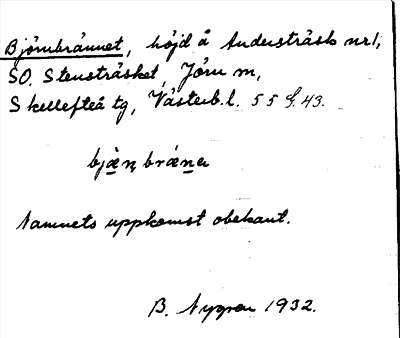 Björnbrännet, höjd å Andersträsk nr 1,
SO. Stensträsket, Jörn sn,
Skellefteå tg, Västerb. l. 55 G. 43.
bjæ̀ṇbrǽna
Namnets uppkomst obekant.
B. Nygren 1932.